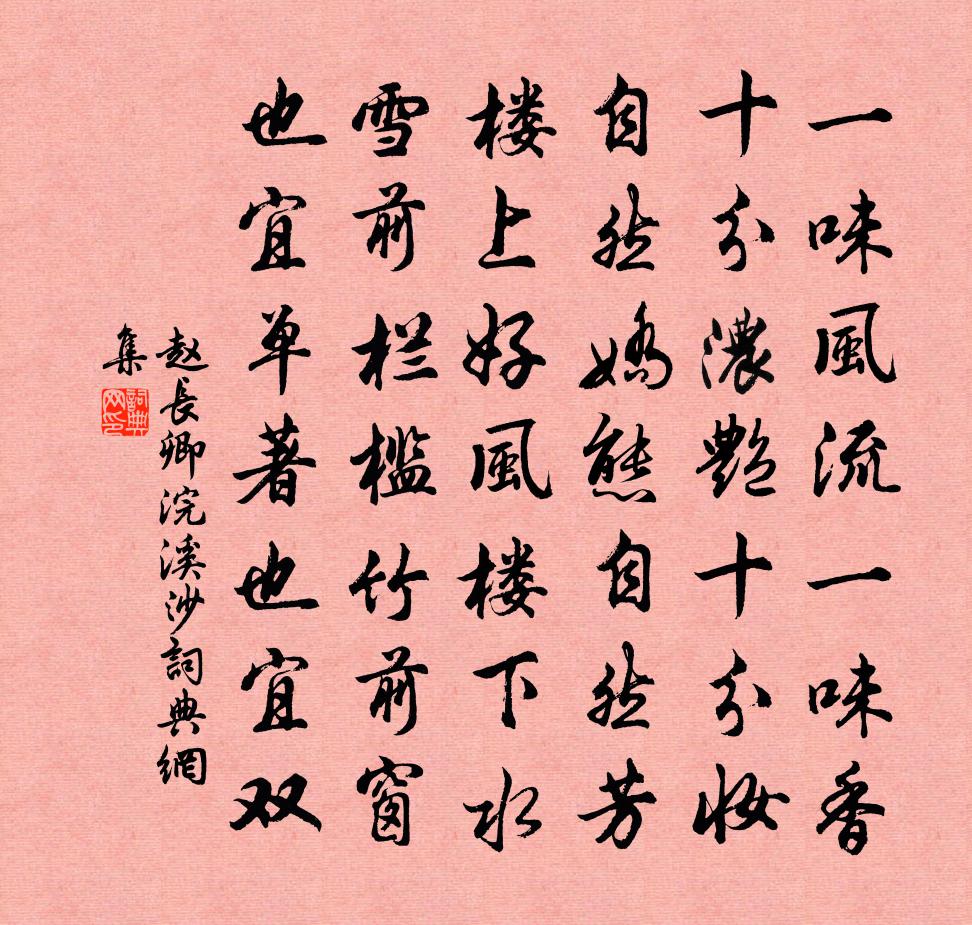 一味風流一味香
十分濃艷十分妝
自然嬌態自然芳
楼上好風楼下水
雪前栏槛竹前窗
也宜单著也宜双
赵長卿浣溪沙詞典網
集
詞典網印